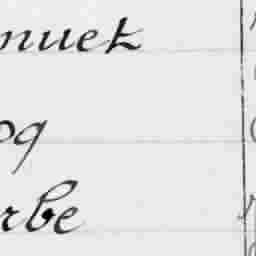 nuet
og
rbe